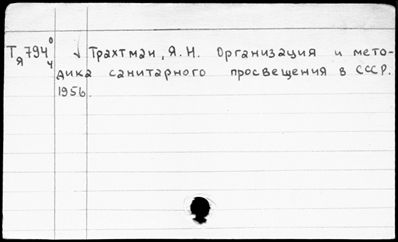 Тя794⁰₄ ↓ Трахтман, Я. Н. Организация и мето-
дика санитарного просвещения в СССР.
1956.